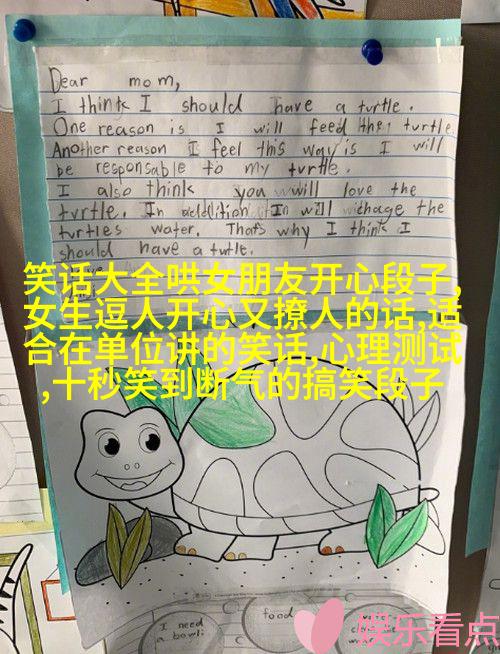 Dear mom,
I think I should have a turtle.
One reason is I will feed the turtle.
Another reason I feel this way is I will
be responsable to my turtle.
I also think you will love the
turtle. In addition I will chage the
turtles water. That's why I think I
should have a turtle.
笑话大全哄女朋友开心段子,
女生逗人开心又撩人的话,适
合在单位讲的笑话,心理测试
,十秒笑到断气的搞笑段子
I need
a bowl
food
娱乐看点